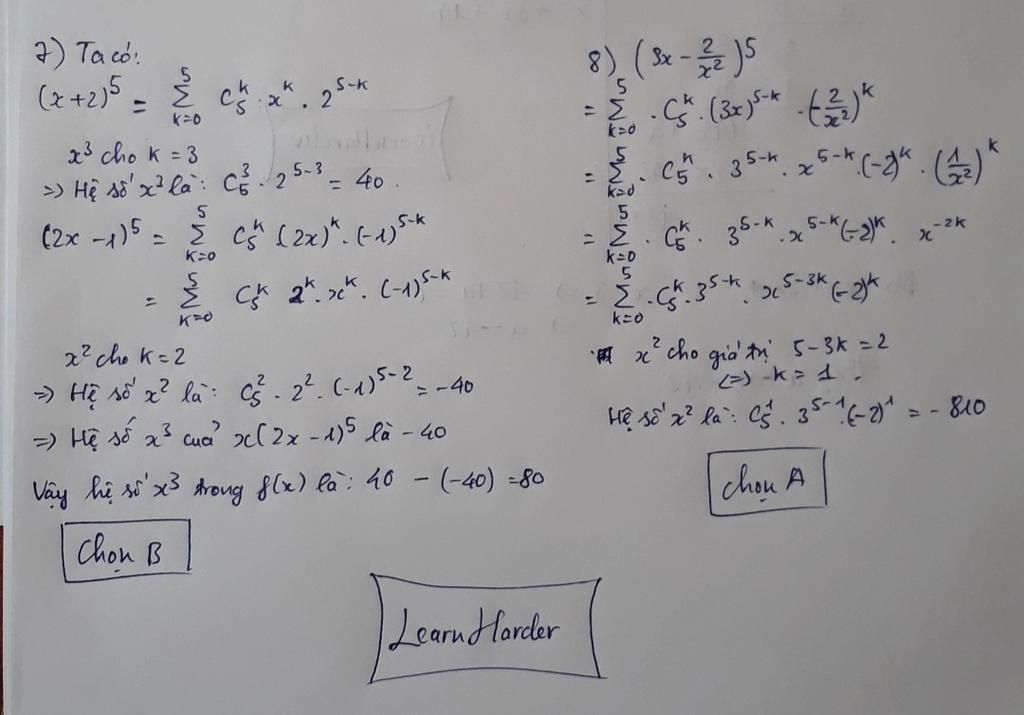 7) Ta có:
(x+2)^5 = Σ_{k=0}^{5} C_5^k · x^k · 2^{5-k}
x^3 cho k = 3
=> Hệ số x^3 là: C_5^3 · 2^{5-3} = 40.
(2x -1)^5 = Σ_{k=0}^{5} C_5^k (2x)^k · (-1)^{5-k}
= Σ_{k=0}^{5} C_5^k 2^k · x^k · (-1)^{5-k}
x^2 cho k = 2
=> Hệ số x^2 là: C_5^2 · 2^2 · (-1)^{5-2} = -40
=> Hệ số x^3 của x(2x -1)^5 là -40
Vậy hệ số x^3 trong f(x) là: 40 - (-40) = 80
Chọn B
8) (3x - 2/x^2)^5
= Σ_{k=0}^{5} · C_5^k · (3x)^{5-k} · (-2/x^2)^k
= Σ_{k=0}^{5} · C_5^k · 3^{5-k} · x^{5-k} · (-2)^k · (1/x^2)^k
= Σ_{k=0}^{5} · C_5^k · 3^{5-k} · x^{5-k} (-2)^k · x^{-2k}
= Σ_{k=0}^{5} · C_5^k · 3^{5-k} · x^{5-3k} (-2)^k
x^2 cho giá trị 5-3k = 2
<=> k = 1.
Hệ số x^2 là: C_5^1 · 3^{5-1} · (-2)^1 = -810
Chọn A
LearnHarder